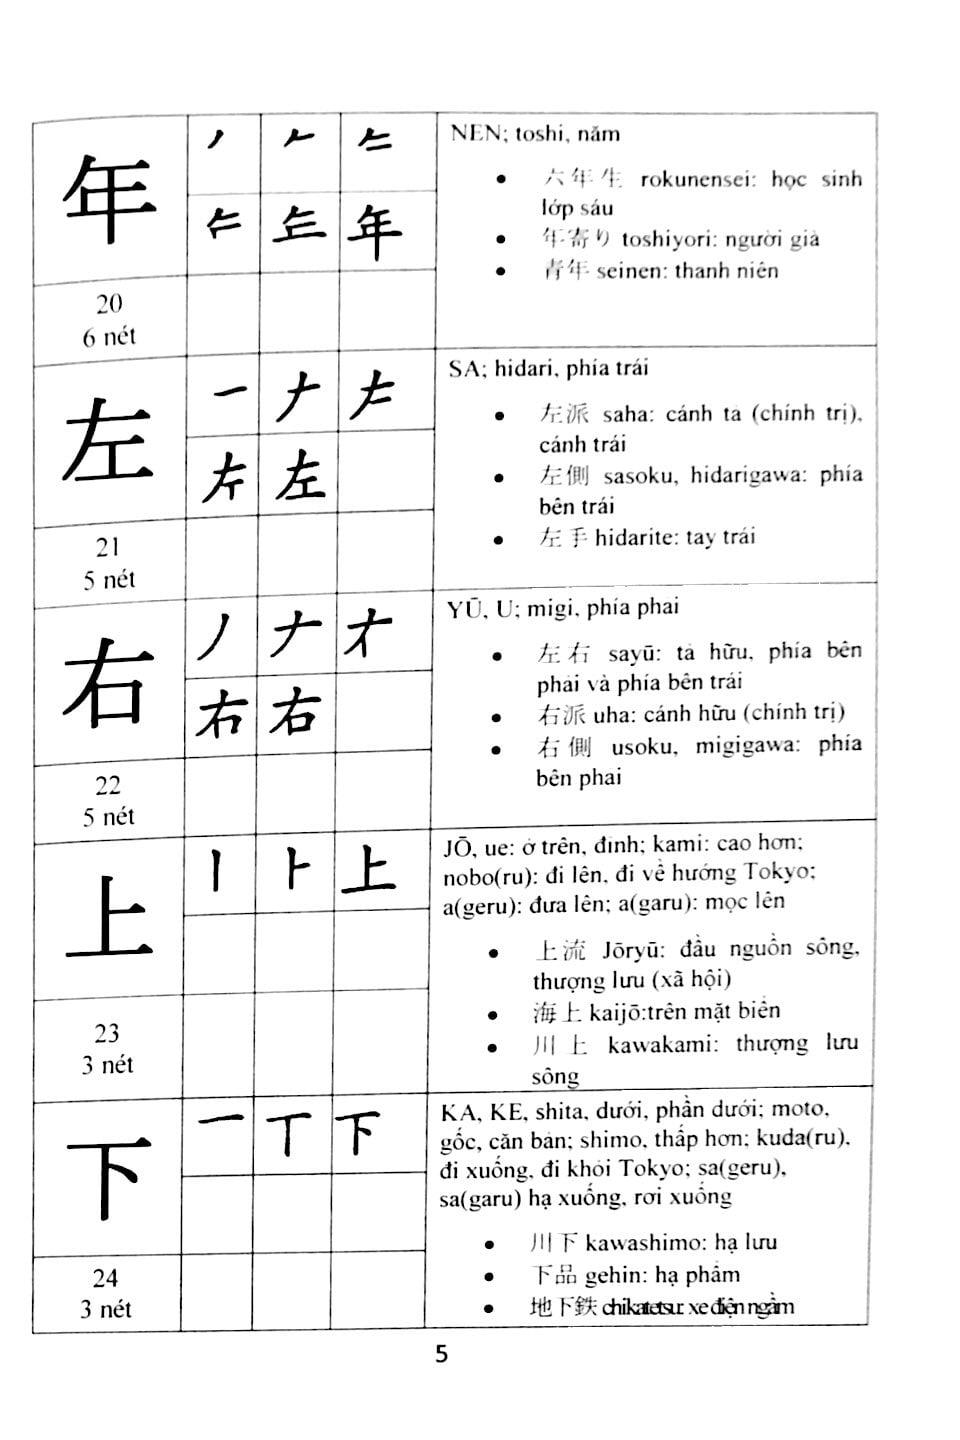 年
NEN; toshi, năm
• 六年生 rokunensei: học sinh
lớp sáu
• 年寄り toshiyori: người già
• 青年 seinen: thanh niên
20
6 nét
左
SA; hidari, phía trái
• 左派 saha: cánh tả (chính trị),
cánh trái
• 左側 sasoku, hidarigawa: phía
bên trái
• 左手 hidarite: tay trái
21
5 nét
右
YŪ, U; migi, phía phải
• 左右 sayū: tả hữu, phía bên
phải và phía bên trái
• 右派 uha: cánh hữu (chính trị)
• 右側 usoku, migigawa: phía
bên phải
22
5 nét
上
JŌ, ue: ở trên, đỉnh; kami: cao hơn;
nobo(ru): đi lên, đi về hướng Tokyo;
a(geru): đưa lên; a(garu): mọc lên
• 上流 Jōryū: đầu nguồn sông,
thượng lưu (xã hội)
• 海上 kaijō:trên mặt biển
• 川上 kawakami: thượng lưu
sông
23
3 nét
下
KA, KE, shita, dưới, phần dưới; moto,
gốc, căn bản; shimo, thấp hơn; kuda(ru),
đi xuống, đi khỏi Tokyo; sa(geru),
sa(garu) hạ xuống, rơi xuống
• 川下 kawashimo: hạ lưu
• 下品 gehin: hạ phẩm
• 地下鉄 chikatetsu: xe điện ngầm
24
3 nét
5